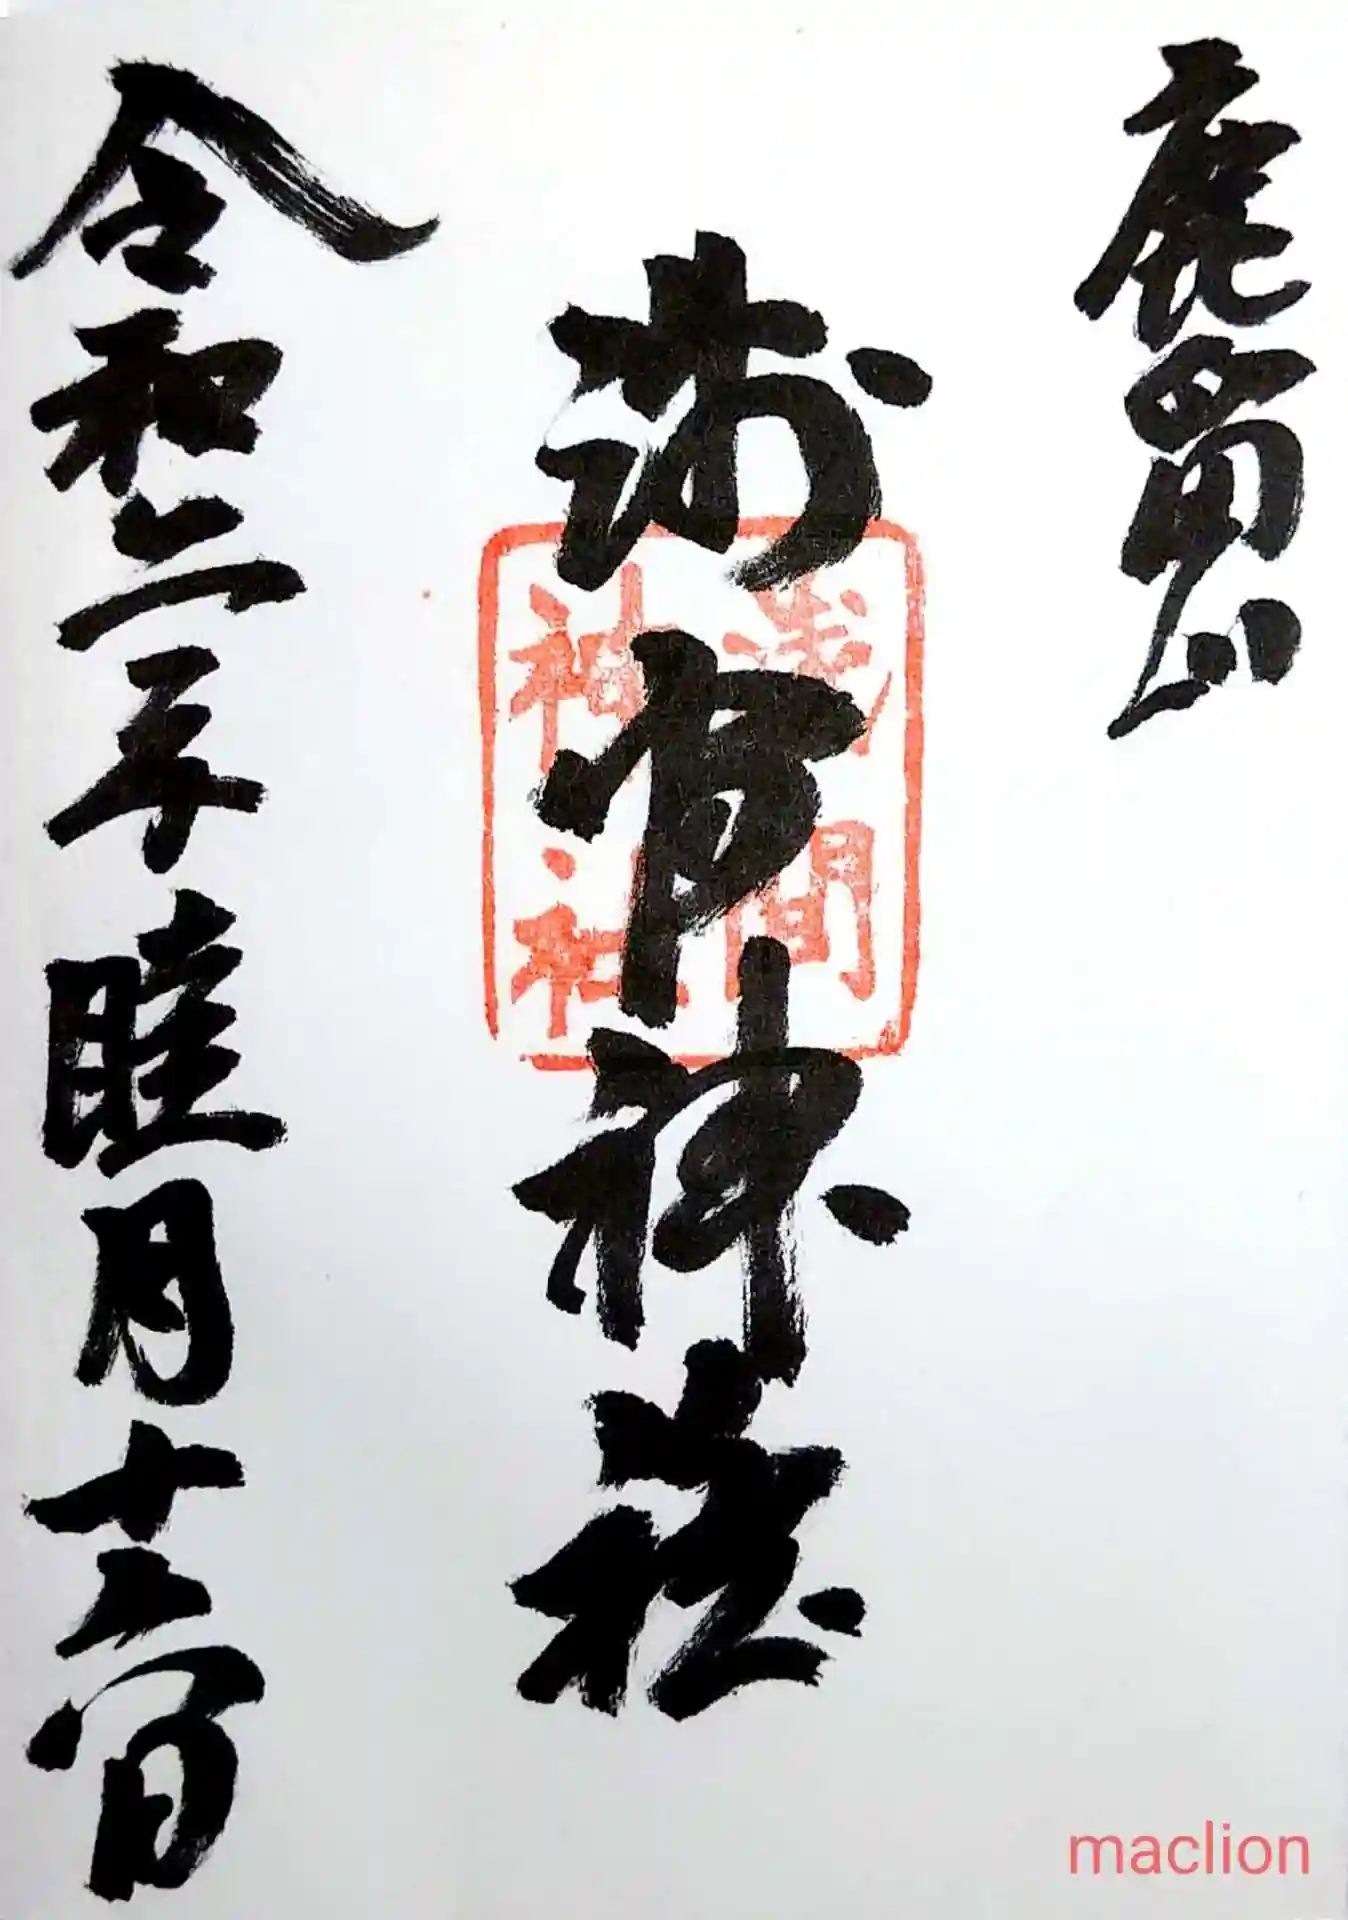 鹿留山
浅間神社
令和二年睦月十
浅間
神社
maclion